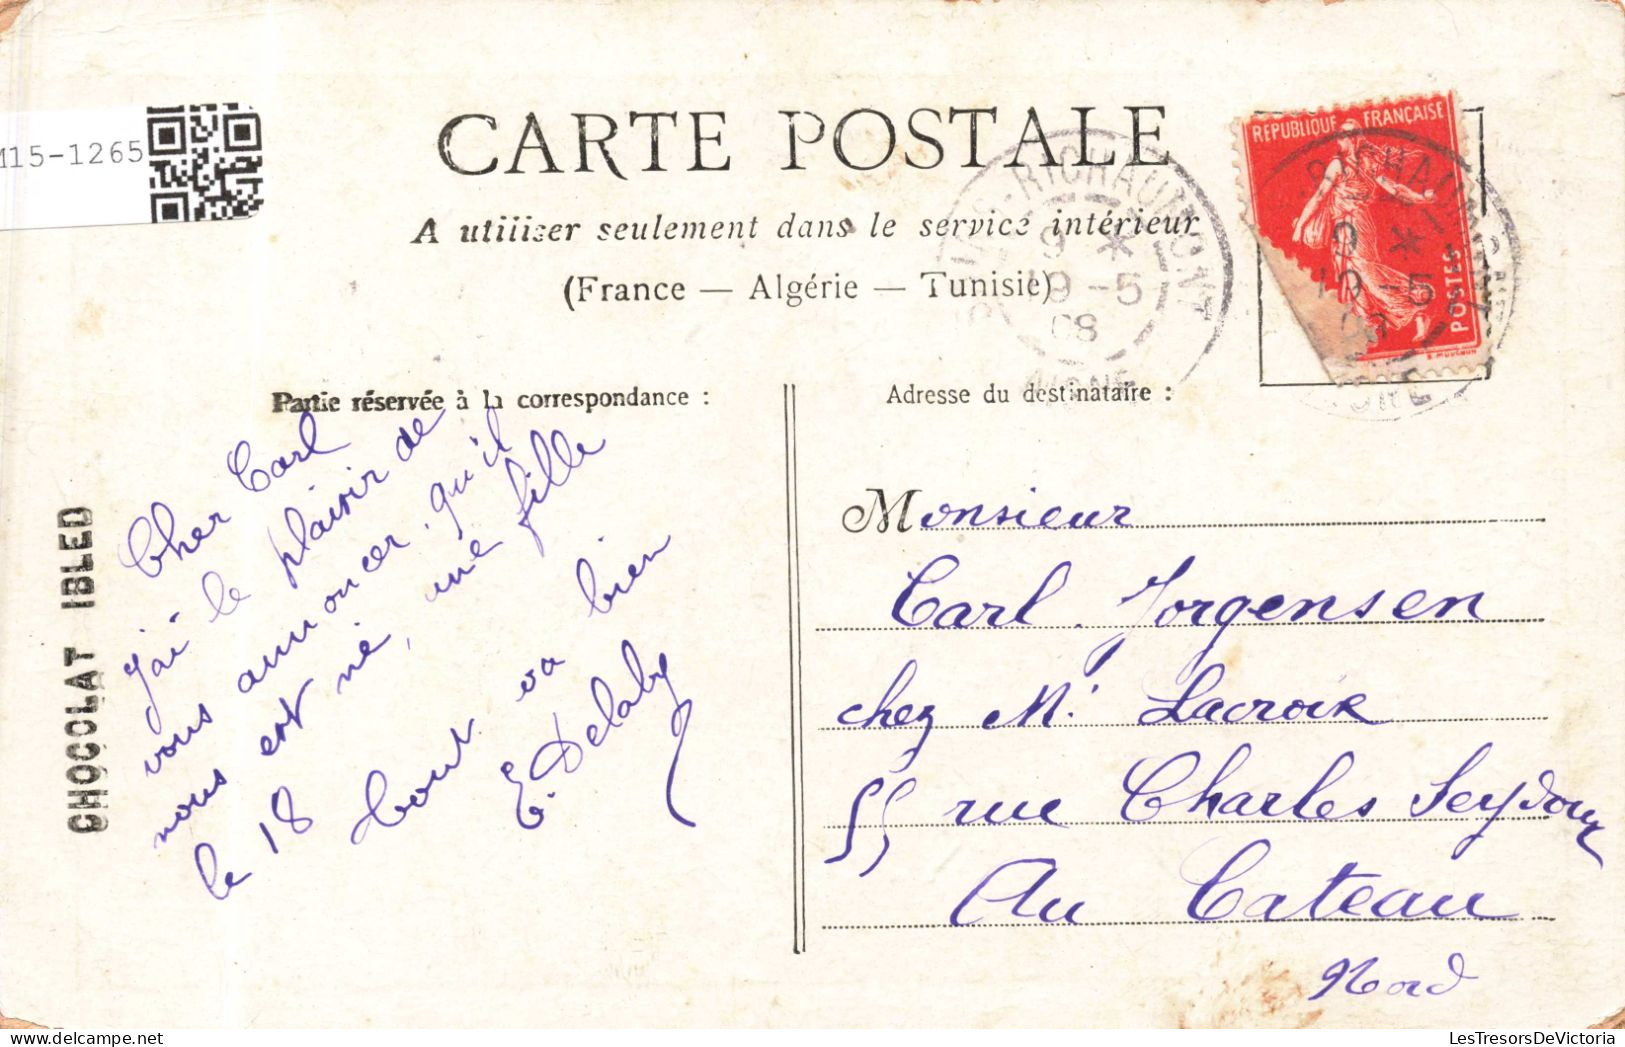 M15-1265
CARTE POSTALE
A utiliser seulement dans le service intérieur
(France — Algérie — Tunisie)
REPUBLIQUE FRANÇAISE
POSTES
RICHAUMONT
9 *
19 - 5
08
AISNE
Partie réservée à la correspondance :
Cher Carl
j'ai le plaisir de
vous annoncer qu'il
nous est né, une fille
le 18 tout va bien
E. Delaby
CHOCOLAT IBLED
Adresse du destinataire :
Monsieur
Carl Jorgensen
chez Mr Lacroix
55 rue Charles Seydoux
Au Cateau
Nord
LesTresorsDeVictoria